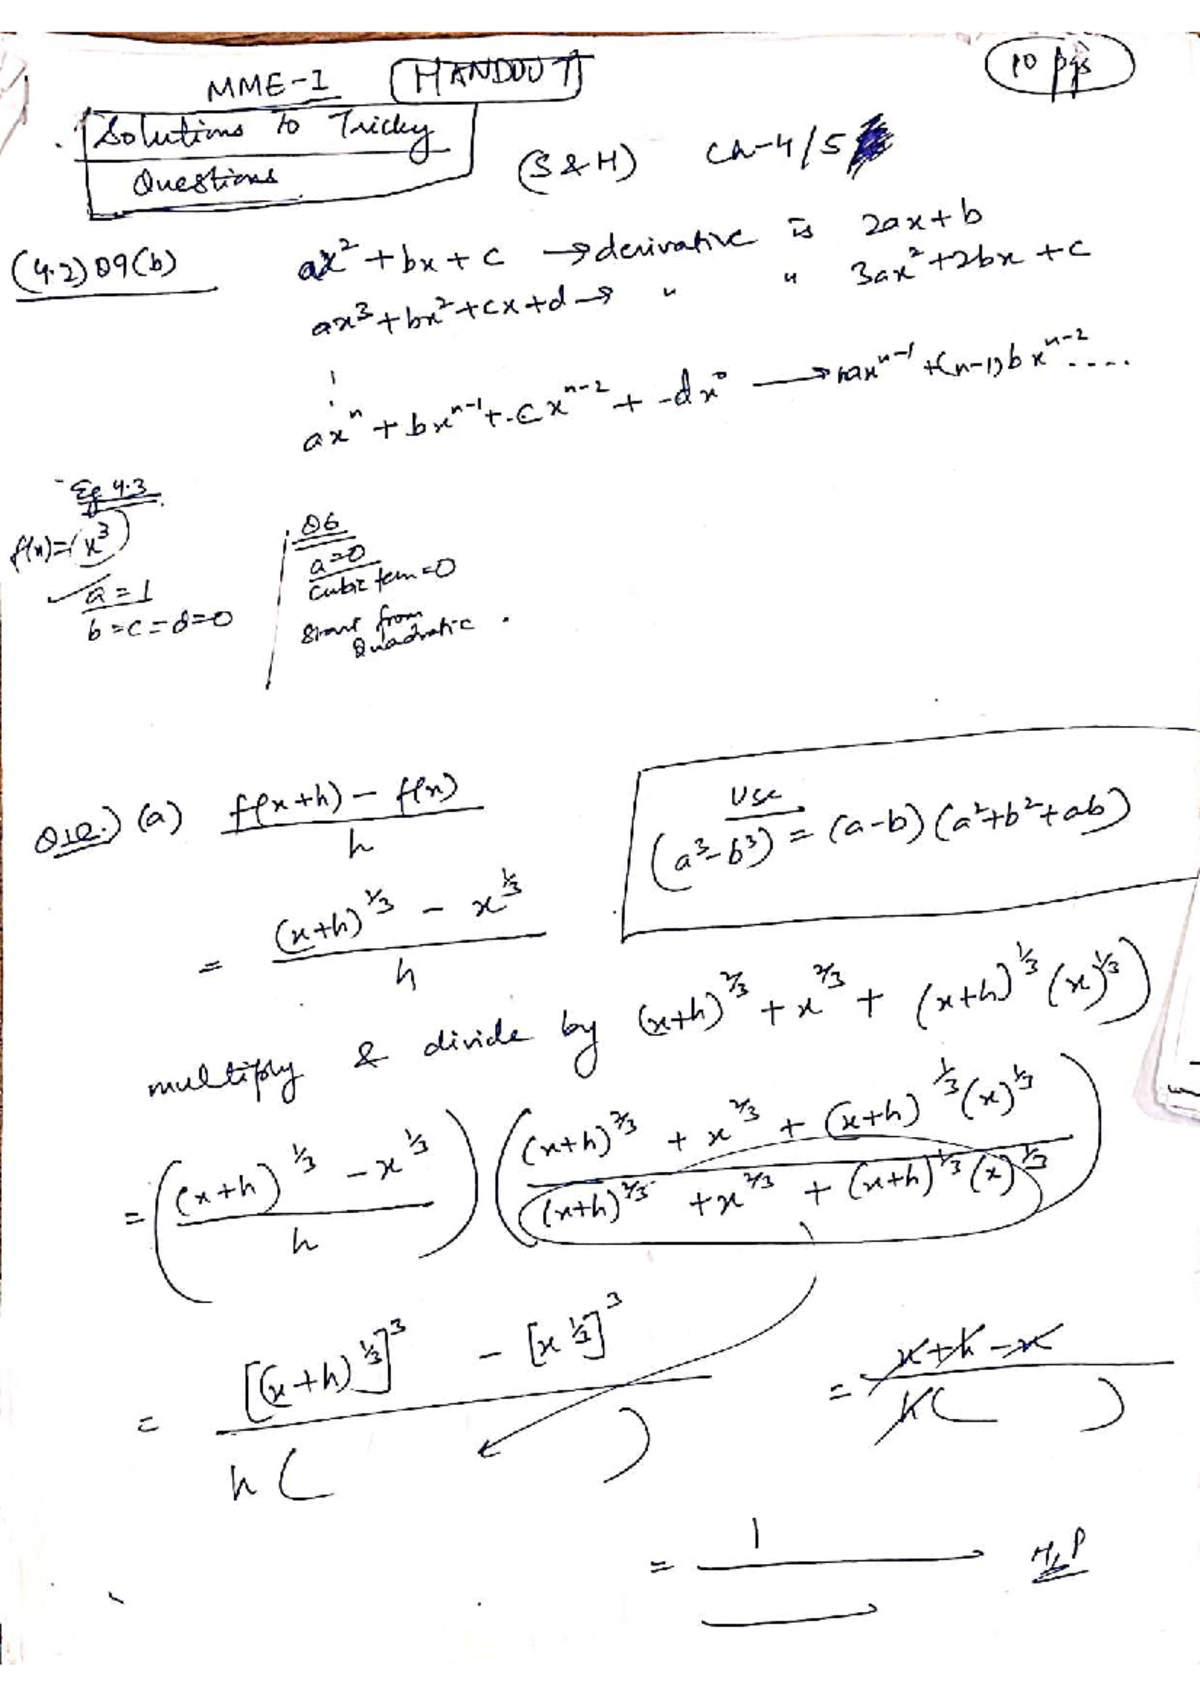 MME-1 HANDOUT 10 pgs
Solutions to Tricky
Questions
(S&H) Ch-4/5
(4.2) Q9(b) ax² + bx + c → derivative is 2ax + b
ax³ + bx² + cx + d → " " 3ax² + 2bx + c
axⁿ + bxⁿ⁻¹ + cxⁿ⁻² + -dx⁰ → nax^{n-1} + (n-1)bx^{n-2} ....
Eg 4.3
f(x) = x³
a = 1
b = c = d = 0
Q6
a = 0
Cubic term = 0
Start from
Quadratic.
Q12.) (a) f(x+h) - f(x)
h
Use
(a³-b³) = (a-b)(a²+b²+ab)
= (x+h)^{1/3} - x^{1/3}
h
multiply & divide by (x+h)^{2/3} + x^{2/3} + (x+h)^{1/3} (x)^{1/3})
= ((x+h)^{1/3} - x^{1/3}) ((x+h)^{2/3} + x^{2/3} + (x+h)^{1/3} (x)^{1/3})
h (x+h)^{2/3} + x^{2/3} + (x+h)^{1/3} (x)^{1/3}
= [(x+h)^{1/3}]³ - [x^{1/3}]³ = x+h-x
h ( ) h ( )
= 1 H.P